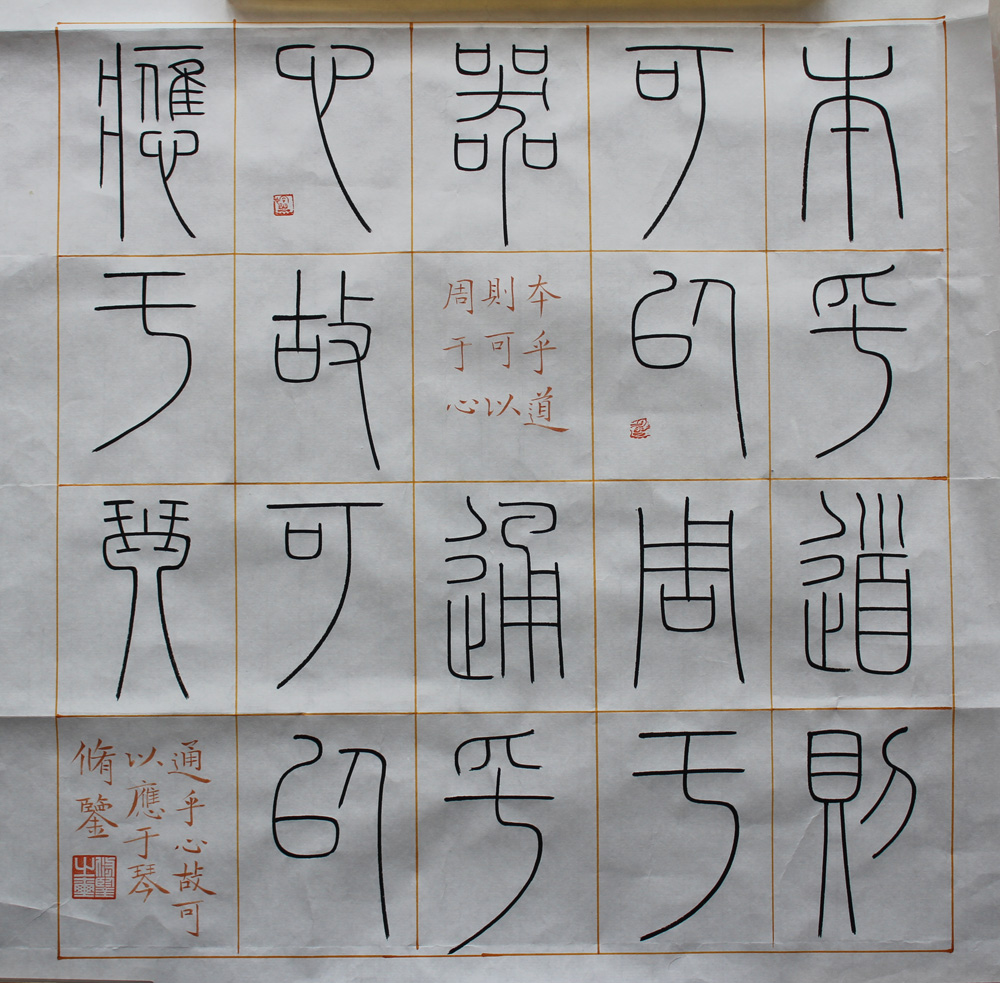 本乎道則
可以周于
器
通乎
心故可以
應于琴
本乎道
則可以
周于心
通乎心故可
以應于琴
脩鑒